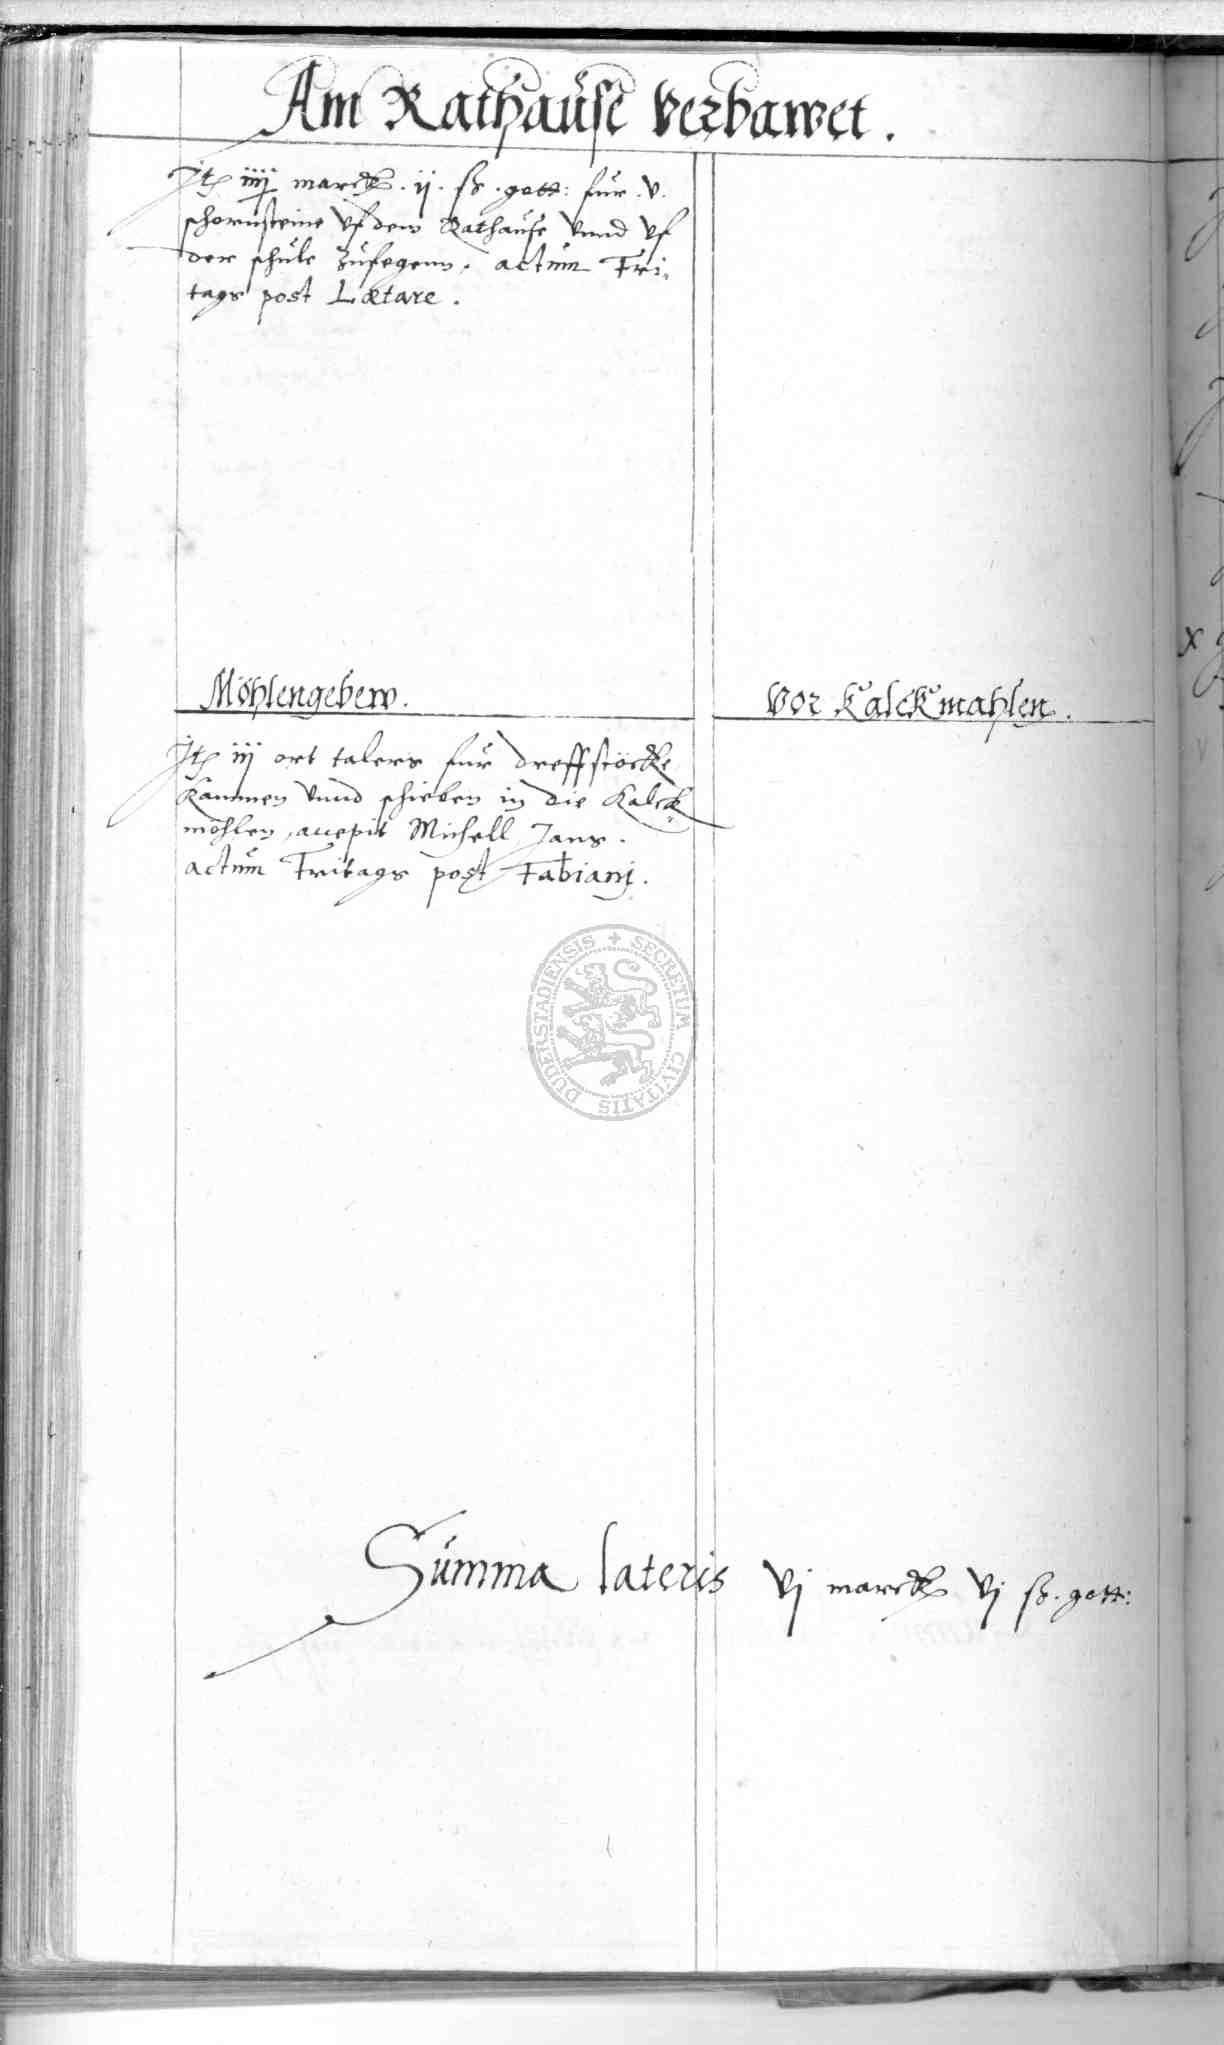 Am Rathause verbawet.
Jtem iiij marck. ij. ß. gott: für .v.
schornsteine vf dem Rathause vnnd vf
der schule zufegenn. actum Fri-
tags post Lætare.
Möhlengebew.
Jtem iij ort talers für dreffstöcke
Kammen vnnd schieben in die Kalck-
möhlen, accepit Michell Jans.
actum Fritags post Fabianj.
Vor Kalck mahlen.
SECRETUM CIVITATIS DUDERSTADIENSIS
Summa lateris vj marck vj ß. gott: